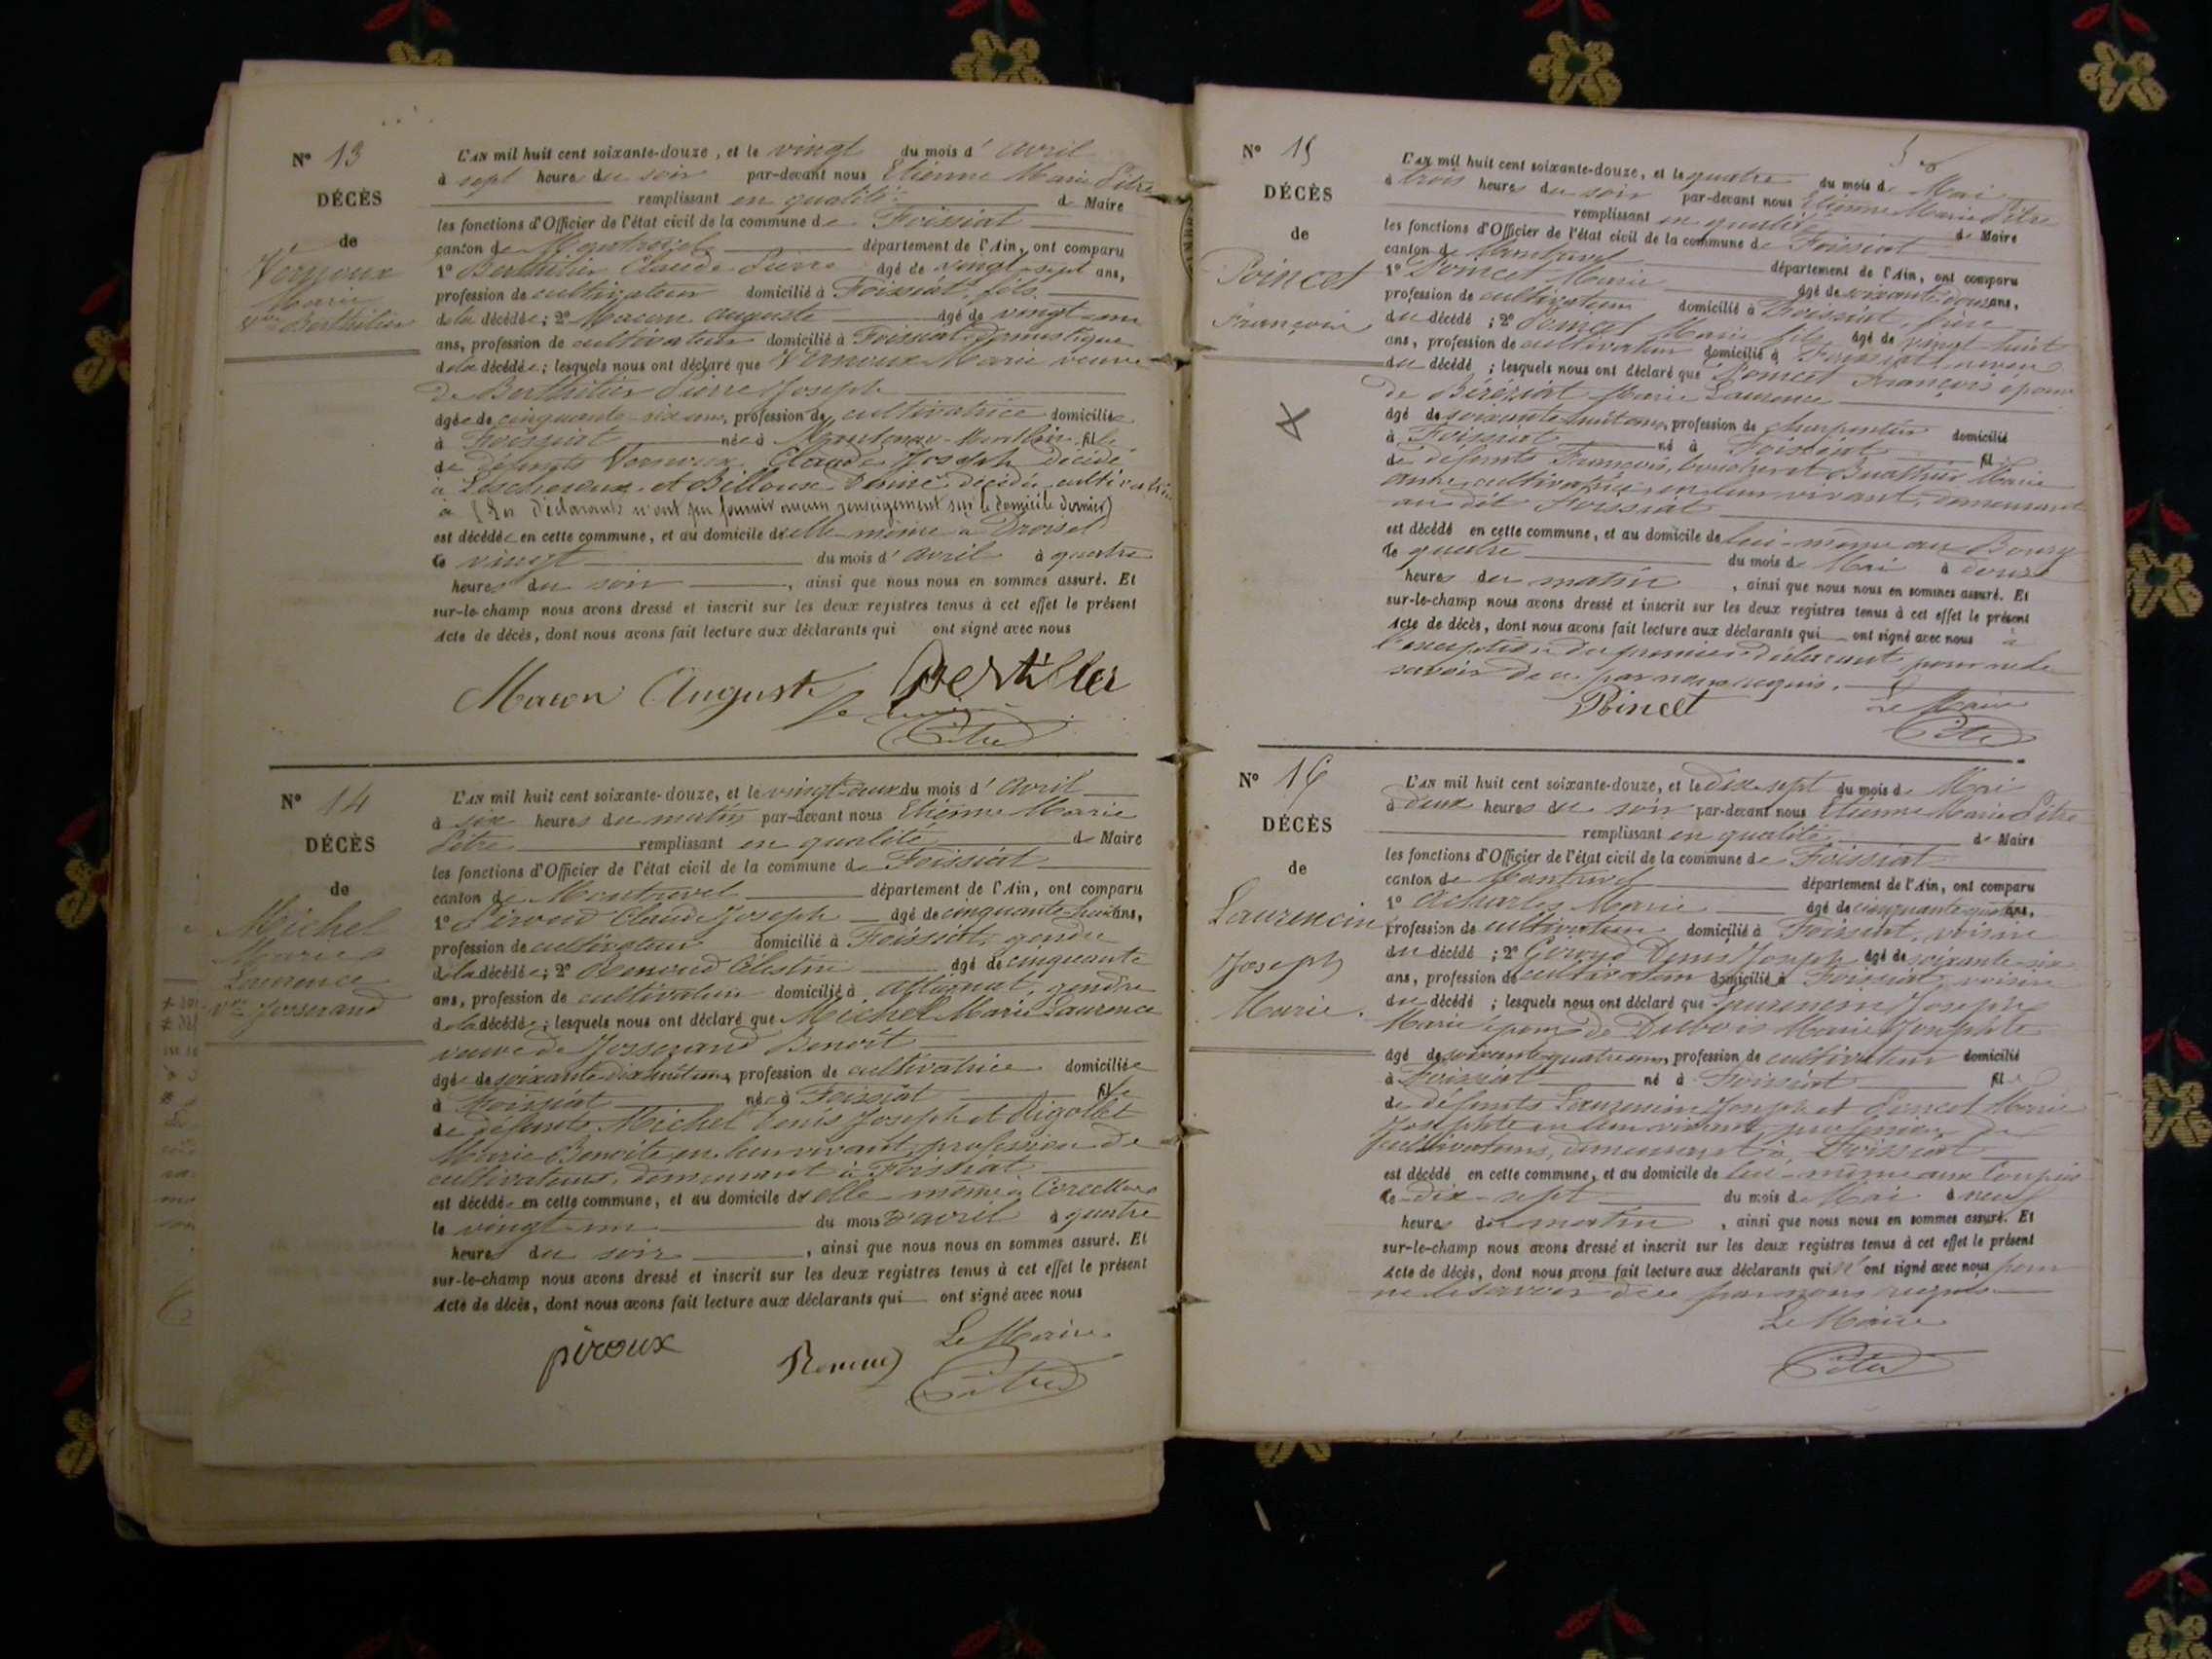 N° 13
DÉCÈS
de
Vernoux
Marie
Vve Berthilier
L'AN mil huit cent soixante-douze, et le vingt du mois d'avril
à sept heures du soir par-devant nous Etienne Marie Pitre
remplissant en qualité de Maire
les fonctions d'Officier de l'état civil de la commune de Foissiat
canton de Montrevel département de l'Ain, ont comparu
1° Berthilier Claude Pierre âgé de vingt-sept ans,
profession de cultivateur domicilié à Foissiat, fils
de la décédée; 2° Macon Auguste âgé de vingt-un
ans, profession de cultivateur domicilié à Foissiat Domestique
de la décédée; lesquels nous ont déclaré que Vernoux Marie veuve
de Berthilier Pierre Joseph
âgée de cinquante-six ans, profession de cultivatrice domiciliée
à Foissiat née à Mantenay-Montlin fille
de défunts Vernoux Claude Joseph décédé
à Lescheroux et Billoux Denise décédée cultivatrice
à (Les déclarants n'ont pu fournir aucun renseignement sur le domicile dernier)
est décédée en cette commune, et au domicile d'elle-même à
le vingt du mois d'avril à quatre
heures du soir, ainsi que nous nous en sommes assuré. Et
sur-le-champ nous avons dressé et inscrit sur les deux registres tenus à cet effet le présent
Acte de décès, dont nous avons fait lecture aux déclarants qui ont signé avec nous
Macon Auguste Bertiller
Pitre
N° 14
DÉCÈS
de
Michel
Marie
Laurence
Vve Josserand
L'AN mil huit cent soixante-douze, et le vingt-deux du mois d'avril
à six heures du matin par-devant nous Etienne Marie
Pitre remplissant en qualité de Maire
les fonctions d'Officier de l'état civil de la commune de Foissiat
canton de Montrevel département de l'Ain, ont comparu
1° Piroud Claude Joseph âgé de cinquante-huit ans,
profession de cultivateur domicilié à Foissiat, gendre
de la décédée; 2° Remond Célestin âgé de cinquante
ans, profession de cultivateur domicilié à Attignat, gendre
de la décédée; lesquels nous ont déclaré que Michel Marie Laurence
veuve de Josserand Benoit
âgée de soixante dix huit ans, profession de cultivatrice domiciliée
à Foissiat née à Foissiat fille
de défunts Michel Denis Joseph et Rigollet
Marie Benoite en leur vivant, profession de
cultivateurs, demeurant à Foissiat
est décédée en cette commune, et au domicile d'elle-même à
le vingt-un du mois d'avril à quatre
heures du soir, ainsi que nous nous en sommes assuré. Et
sur-le-champ nous avons dressé et inscrit sur les deux registres tenus à cet effet le présent
Acte de décès, dont nous avons fait lecture aux déclarants qui ont signé avec nous
piroux Remond Le Maire
Pitre
N° 15
DÉCÈS
de
Poincet
François
L'AN mil huit cent soixante-douze, et le quatre du mois de Mai
à trois heures du soir par-devant nous Etienne Marie Pitre
remplissant en qualité de Maire
les fonctions d'Officier de l'état civil de la commune de Foissiat
canton de Montrevel département de l'Ain, ont comparu
1° Poncet Marie âgé de soixante douze ans,
profession de cultivateur domicilié à Foissiat, frère
du décédé; 2° Poncet Marie fils âgé de vingt-huit
ans, profession de cultivateur domicilié à Foissiat, neveu
du décédé; lesquels nous ont déclaré que Poncet François époux
de Béréziat Marie Laurence
âgé de soixante huit ans, profession de charpentier domicilié
à Foissiat né à Foissiat fils
de défunts François, et Marie
cultivatrice, en leur vivant, demeurant
au dit Foissiat
est décédé en cette commune, et au domicile de lui-même au Bourg
le quatre du mois de Mai à
heures du matin, ainsi que nous nous en sommes assuré. Et
sur-le-champ nous avons dressé et inscrit sur les deux registres tenus à cet effet le présent
Acte de décès, dont nous avons fait lecture aux déclarants qui ont signé avec nous à
l'exception du premier déclarant pour ne le
savoir de ce par nous requis.
Poincet Le Maire
Pitre
N° 16
DÉCÈS
de
Laurencin
Joseph
Marie.
L'AN mil huit cent soixante-douze, et le dix-sept du mois de Mai
à deux heures du soir par-devant nous Etienne Marie Pitre
remplissant en qualité de Maire
les fonctions d'Officier de l'état civil de la commune de Foissiat
canton de Montrevel département de l'Ain, ont comparu
1° Acharles Marie âgé de cinquante quatre ans,
profession de cultivateur domicilié à Foissiat, voisin
du décédé; 2° Denis Joseph âgé de soixante-six
ans, profession de cultivateur domicilié à Foissiat, voisin
du décédé; lesquels nous ont déclaré que Laurencin Joseph
Marie époux de Dubois Marie Josephte
âgé de soixante quatre ans, profession de cultivateur domicilié
à Foissiat né à Foissiat fils
de défunts Laurencin Joseph et Poncet Marie
Josephte en leur vivant, profession de
cultivateurs, demeurant à Foissiat
est décédé en cette commune, et au domicile de lui-même aux
le dix-sept du mois de Mai à neuf
heures du matin, ainsi que nous nous en sommes assuré. Et
sur-le-champ nous avons dressé et inscrit sur les deux registres tenus à cet effet le présent
Acte de décès, dont nous avons fait lecture aux déclarants qui n'ont signé avec nous pour
ne le savoir de ce par nous requis
Le Maire
Pitre